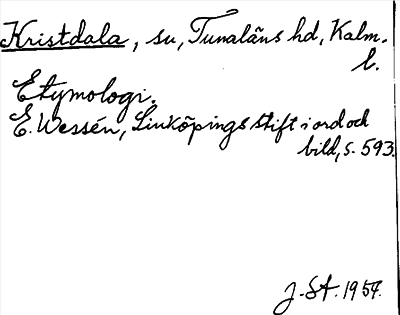 Kristdala, su, Tunaläns hd, Kalm.
l.
Etymologi.
E. Wessén, Linköpings stift i ord och
bild, s. 593.
J. St. 1954.